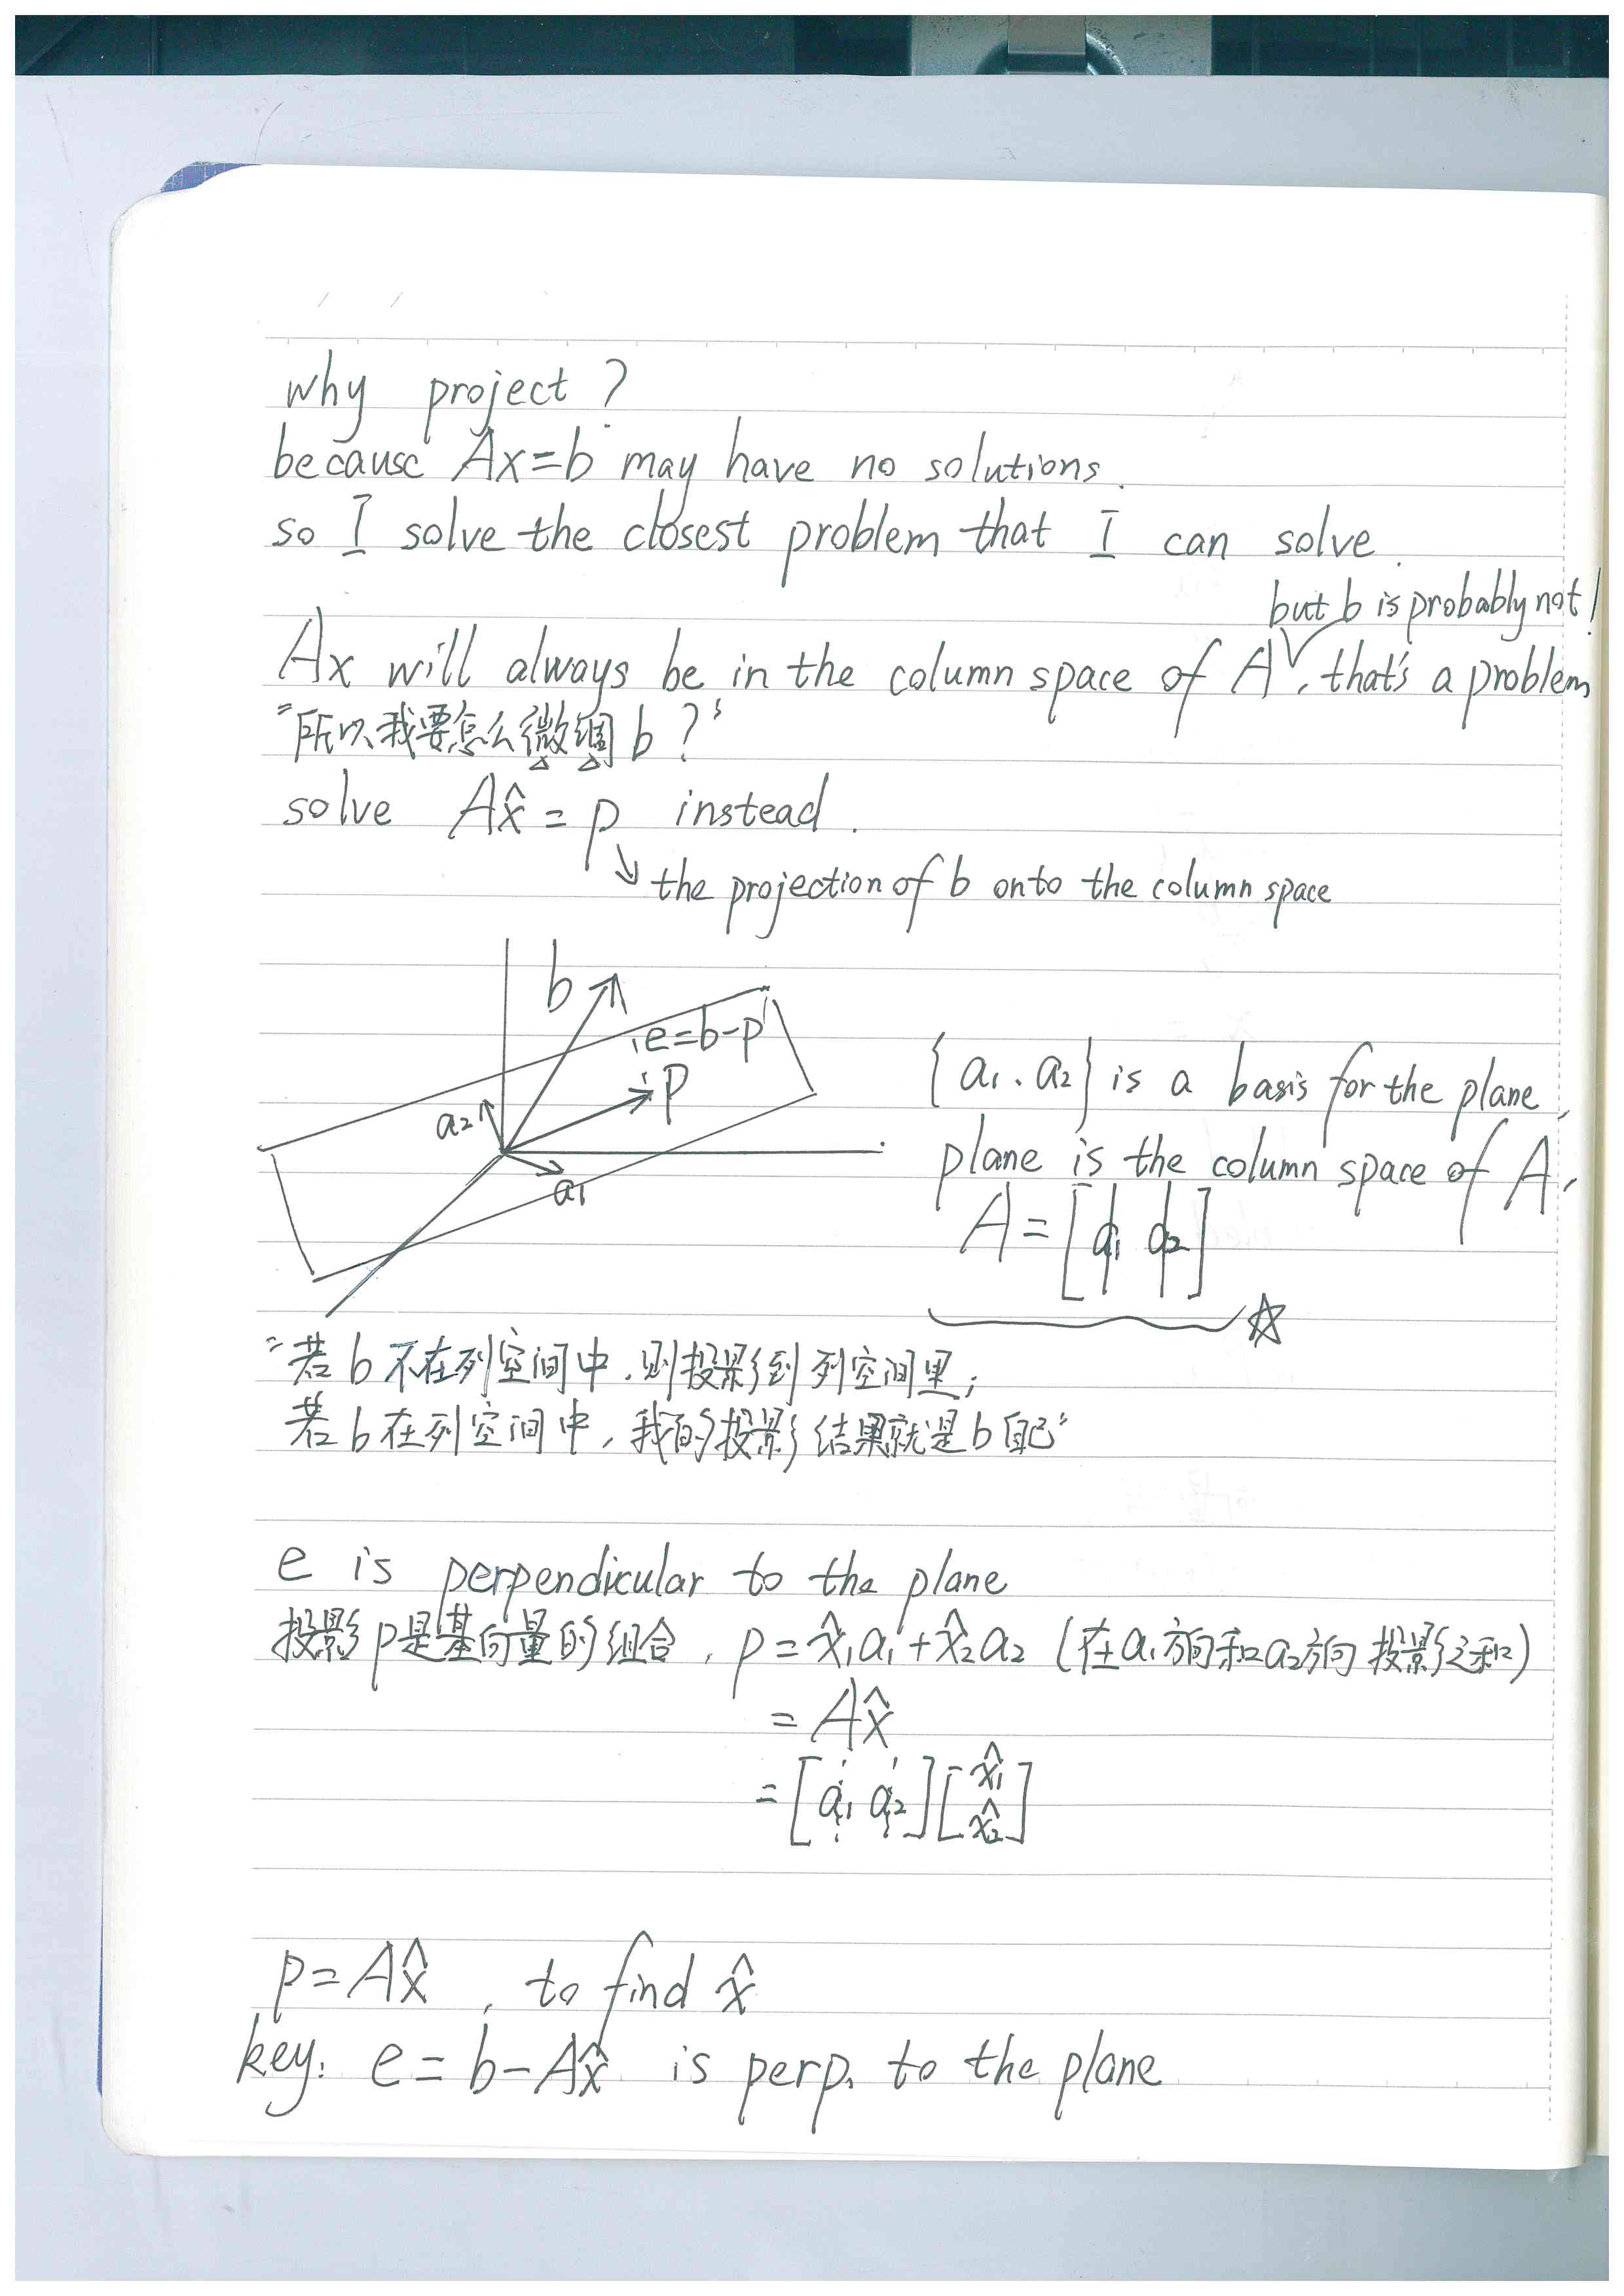 why project ?
because Ax=b may have no solutions.
so I solve the closest problem that I can solve.
but b is probably not!
Ax will always be in the column space of A, that's a problem
"所以我要怎么微调 b ?"
solve Ax̂ = p instead.
the projection of b onto the column space
b
e=b-p
p
a₂
a₁
{a₁, a₂} is a basis for the plane,
plane is the column space of A,
A = [a₁ a₂]
☆
"若 b 不在列空间中,则投影到列空间里;
若 b 在列空间中,我的投影结果就是 b 自己"
e is perpendicular to the plane
投影 p 是基向量的组合, p = x̂₁a₁ + x̂₂a₂ (在a₁方向和a₂方向投影之和)
= Ax̂
= [a₁ a₂][x̂₁ x̂₂]
p = Ax̂, to find x̂
key: e = b - Ax̂ is perp. to the plane